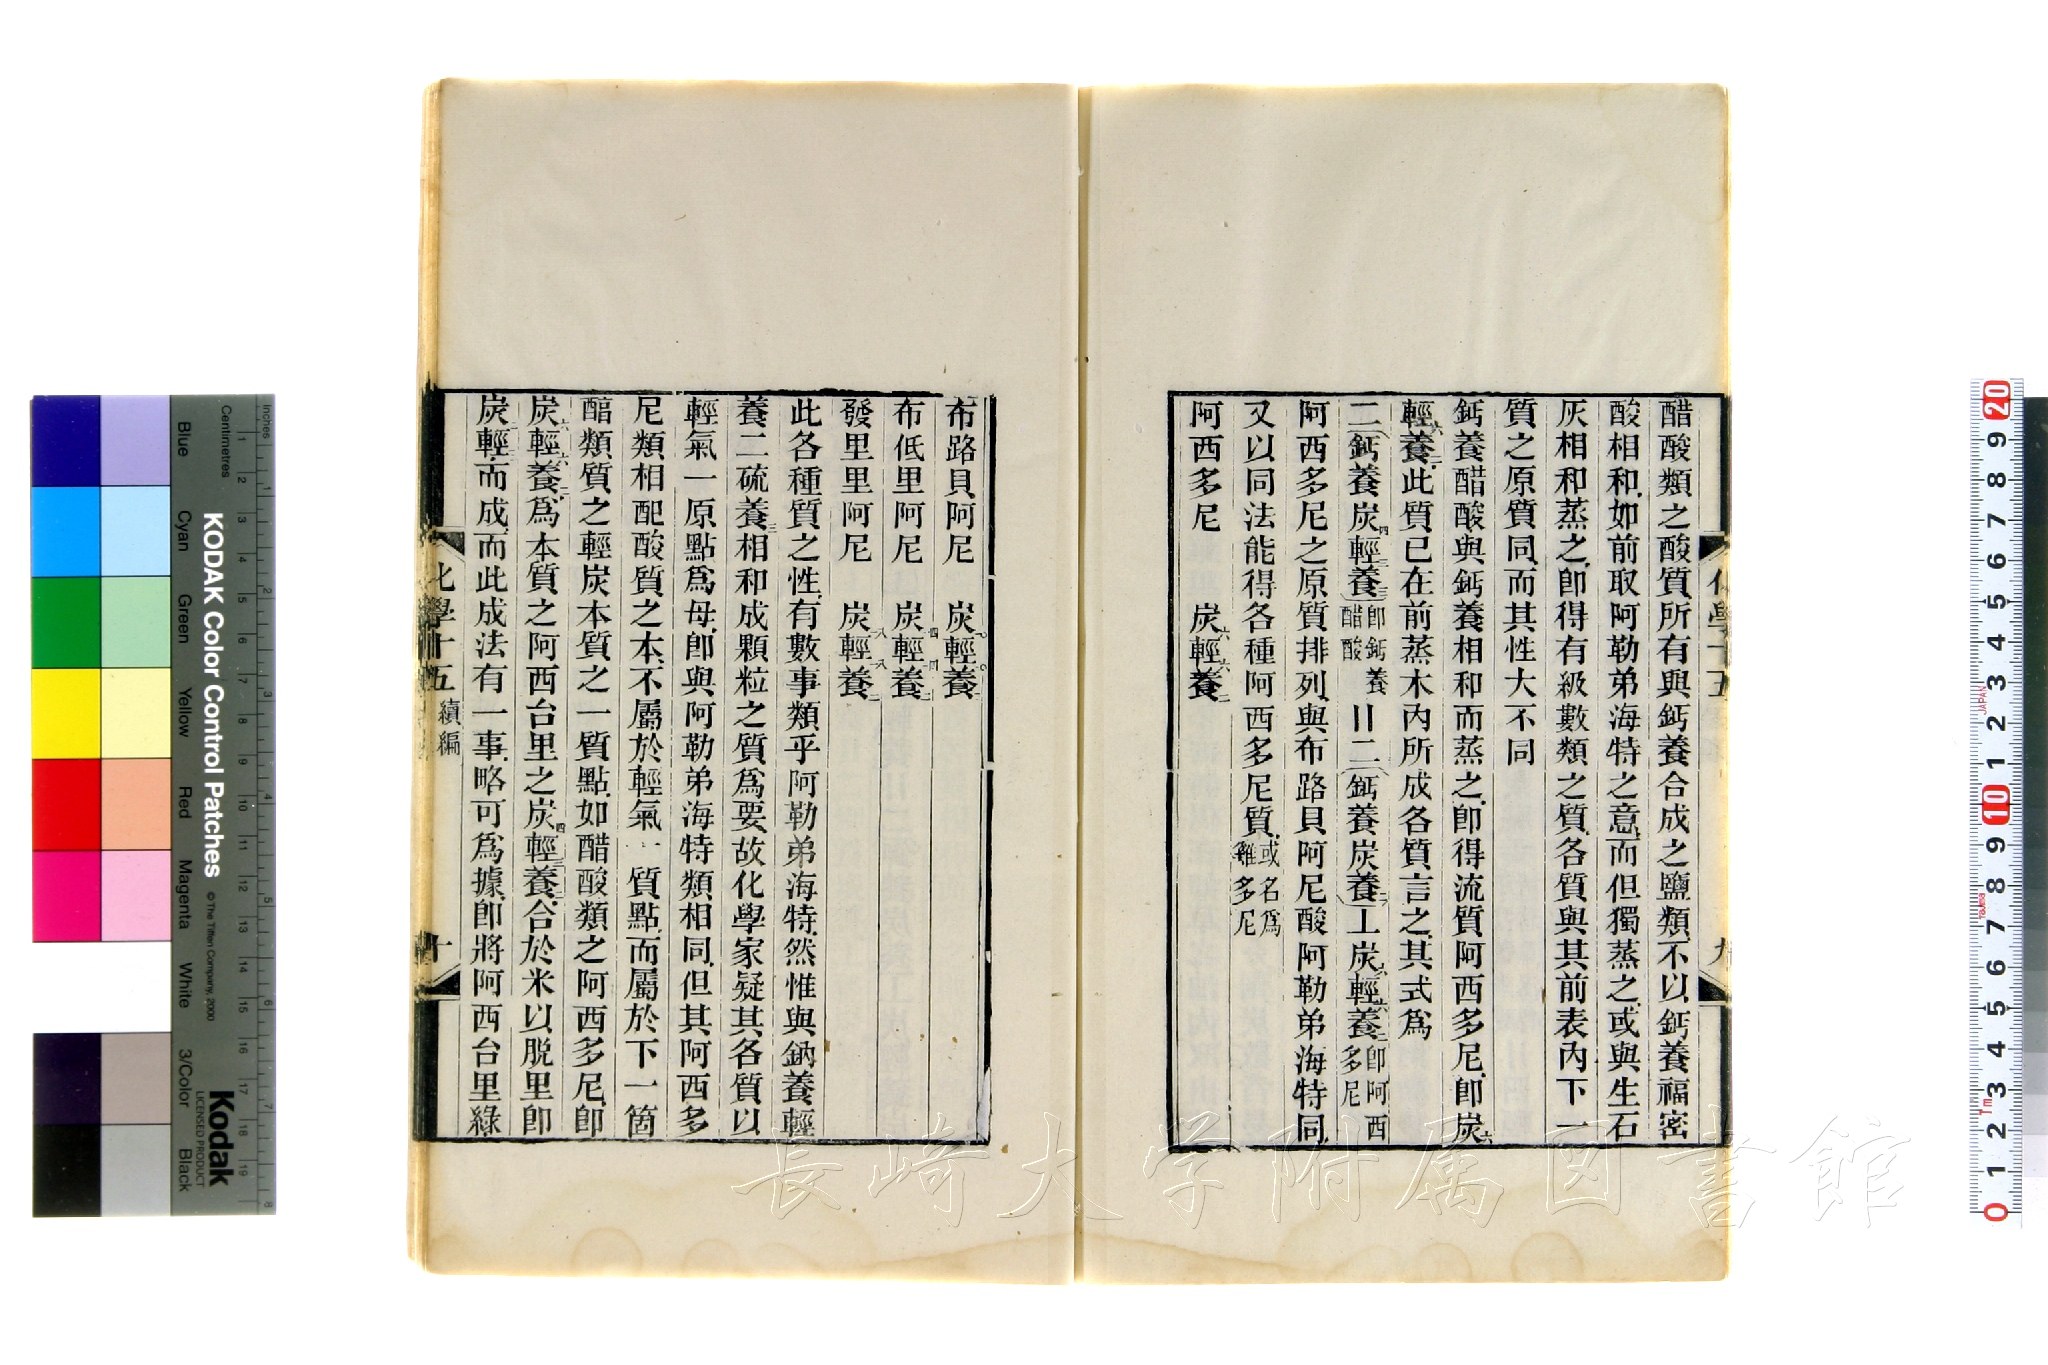 醋酸類之酸質所有與鈣養合成之鹽類不以鈣養福密
酸相和如前取阿勒弟海特之意而但獨蒸之或與生石
灰相和蒸之卽得有級數類之質各質與其前表內下一
質之原質同而其性大不同
鈣養醋酸與鈣養相和而蒸之卽得流質阿西多尼卽炭六
輕六養二此質已在前蒸木內所成各質言之其式爲
二(鈣養炭四輕三養三)卽鈣養醋酸〢二(鈣養炭養二)丄炭六輕六養二卽阿西多尼
阿西多尼之原質排列與布路貝阿尼酸阿勒弟海特同
又以同法能得各種阿西多尼質或名爲雞多尼
阿西多尼 炭六輕六養二
化學十五
九
布路貝阿尼 炭一〇輕一〇養二
布低里阿尼 炭一四輕一四養二
發里里阿尼 炭一八輕一八養二
此各種質之性有數事類乎阿勒弟海特然惟與鈉養輕
養二硫養二相和成顆粒之質爲要故化學家疑其各質以
輕氣一原點爲母卽與阿勒弟海特類相同但其阿西多
尼類相配酸質之本不屬於輕氣一質點而屬於下一箇
醕類質之輕炭本質之一質點如醋酸類之阿西多尼卽
炭六輕六養二爲本質之阿西台里之炭四輕三養二合於米以脫里卽
炭二輕三而成而此成法有一事略可爲據卽將阿西台里綠
化學十五 續編
十
長崎大学附属図書館
KODAK Color Control Patches
© The Tiffen Company, 2000
Kodak
LICENSED PRODUCT
Inches
Centimetres
Blue
Cyan
Green
Yellow
Red
Magenta
White
3/Color
Black
JAPAN
Tajima
Tm